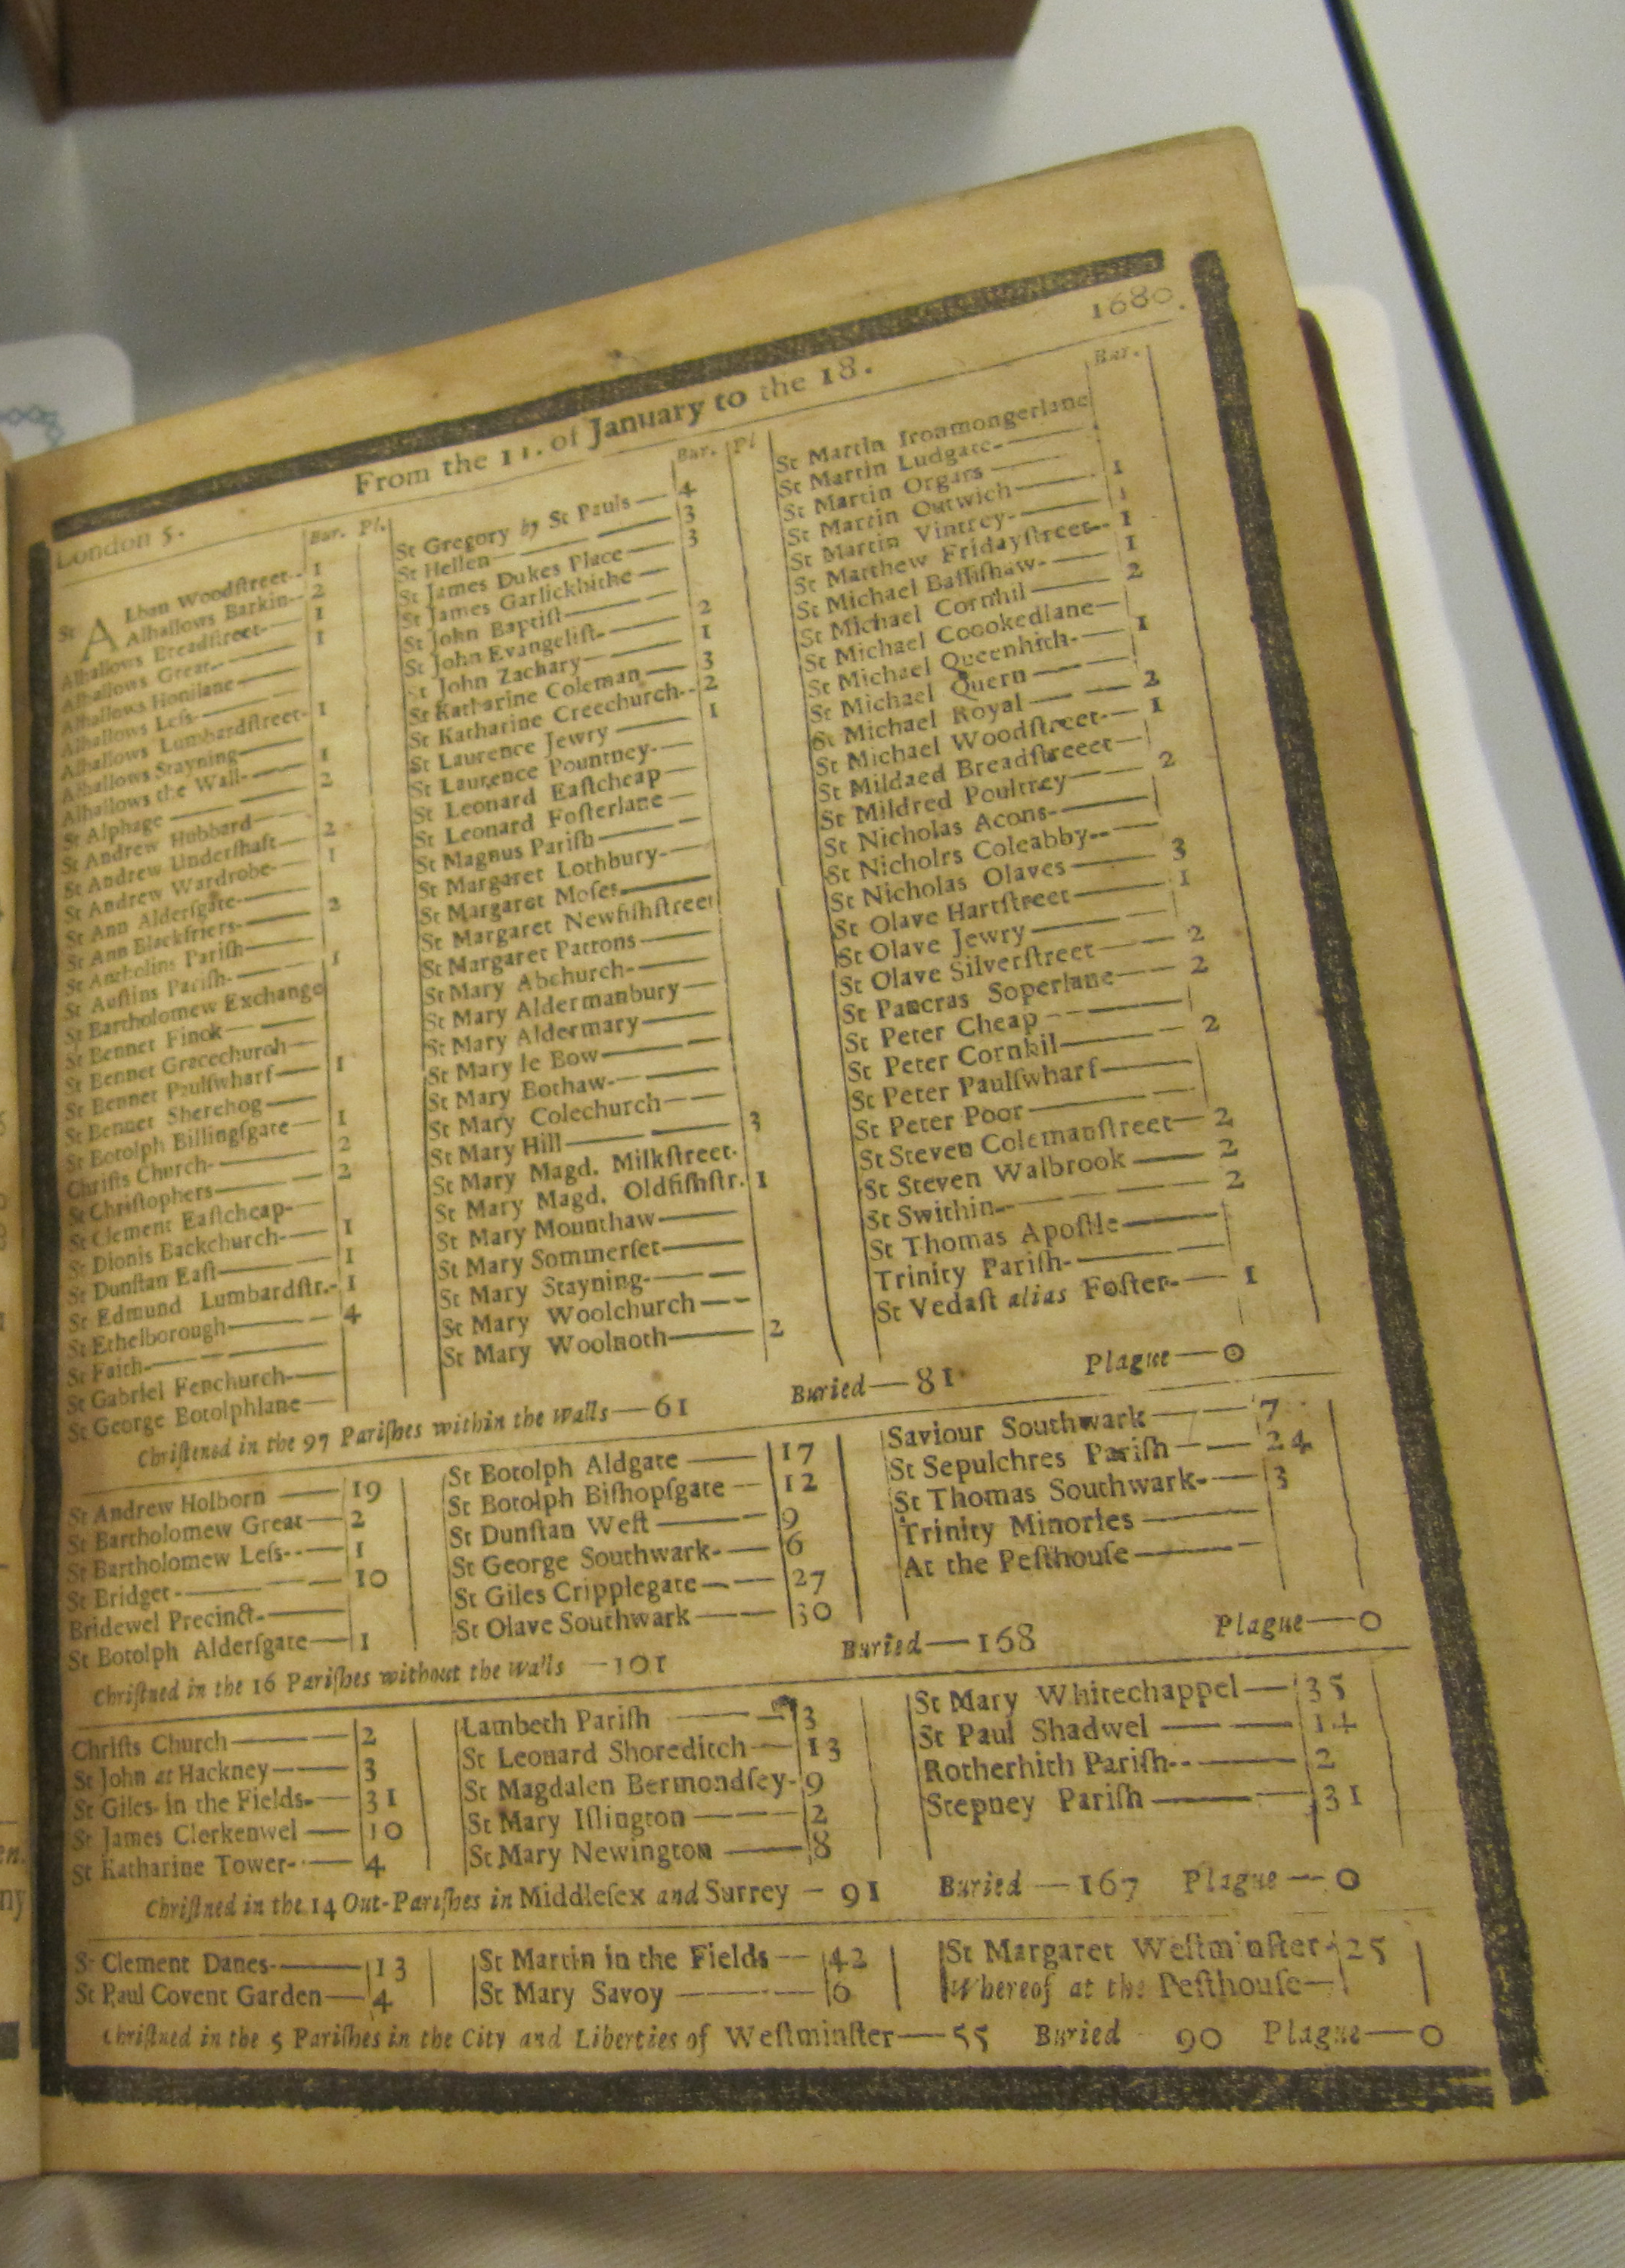 From the 11. of January to the 18. 1680.
London 5. Bur. Pl.
St ALban Woodſtreet-- 1
Alhallows Barkin-- 2
Alhallows Breadſtreet- 1
Alhallows Great-- 1
Alhallows Honilane
Alhallows Leſs-
Alhallows Lumbardſtreet- 1
Alhallows Stayning
Alhallows the Wall- 1
St Alphage 2
St Andrew Hubbard
St Andrew Underſhaft 2
St Andrew Wardrobe- 1
St Ann Alderſgate-
St Ann Blackfriers- 2
St Antholins Pariſh
St Auſtins Pariſh- 1
St Bartholomew Exchange
St Bennet Finck
St Bennet Gracechurch
St Bennet Paulſwharf 1
St Bennet Sherehog
St Botolph Billingſgate 1
Chriſts Church- 2
St Chriſtophers 2
St Clement Eaſtcheap-
St Dionis Backchurch- 1
St Dunſtan Eaſt 1
St Edmund Lumbardſtr.- 1
St Ethelborough 4
St Faith
St Gabriel Fenchurch-
St George Botolphlane
Bur. Pl
St Gregory by St Pauls — 4
St Hellen — 3
St James Dukes Place — 3
St James Garlickhithe —
St John Baptiſt —
St John Evangeliſt- — 2
St John Zachary — 1
St Katharine Coleman — 3
St Katharine Creechurch-- 2
St Laurence Jewry — 1
St Laurence Pountney- —
St Leonard Eaſtcheap —
St Leonard Foſterlane —
St Magnus Pariſh —
St Margaret Lothbury- —
St Margaret Moſes —
St Margaret Newfiſhſtreet
St Margaret Pattons —
St Mary Abchurch- —
St Mary Aldermanbury —
St Mary Aldermary —
St Mary le Bow —
St Mary Bothaw- —
St Mary Colechurch —
St Mary Hill — 3
St Mary Magd. Milkſtreet-
St Mary Magd. Oldfiſhſtr. 1
St Mary Mounthaw —
St Mary Sommerſet —
St Mary Stayning- —
St Mary Woolchurch —
St Mary Woolnoth — 2
Bur.
St Martin Ironmongerlane
St Martin Ludgate-
St Martin Orgars —
St Martin Outwich — 1
St Martin Vintrey- — 1
St Matthew Fridayſtreet-- 1
St Michael Baſſiſhaw- — 1
St Michael Cornhil — 2
St Michael Coookedlane —
St Michael Queenhith- — 1
St Michael Quern —
St Michael Royal — 2
St Michael Woodſtreet- — 1
St Mildaed Breadſtreeet —
St Mildred Poultrey — 2
St Nicholas Acons- —
St Nicholrs Coleabby-- —
St Nicholas Olaves — 3
St Olave Hartſtreet — 1
St Olave Jewry —
St Olave Silverſtreet — 2
St Pancras Soperlane — 2
St Peter Cheap —
St Peter Cornhil — 2
St Peter Paulſwharf —
St Peter Poor —
St Steven Colemanſtreet — 2
St Steven Walbrook — 2
St Swithin- — 2
St Thomas Apoſtle —
Trinity Pariſh- —
St Vedaſt alias Foſter- — 1
Chriſtened in the 97 Pariſhes within the walls — 61 Buried — 81 Plague — 0
St Andrew Holborn — 19
St Bartholomew Great — 2
St Bartholomew Leſs-- — 1
St Bridget - — 10
Bridewel Precinct- —
St Botolph Alderſgate — 1
St Botolph Aldgate — 17
St Botolph Biſhopſgate — 12
St Dunſtan Weſt — 9
St George Southwark- — 6
St Giles Cripplegate — 27
St Olave Southwark — 30
Saviour Southwark — 7
St Sepulchres Pariſh — 24
St Thomas Southwark- — 3
Trinity Minories —
At the Peſthouſe —
Chriſtned in the 16 Pariſhes without the walls — 101 Buried — 168 Plague — 0
Chriſts Church — 2
St John at Hackney — 3
St Giles in the Fields- — 31
St James Clerkenwel — 10
St Katharine Tower- — 4
Lambeth Pariſh — 3
St Leonard Shoreditch — 13
St Magdalen Bermondſey- 9
St Mary Iſlington — 2
St Mary Newington — 8
St Mary Whitechappel — 35
St Paul Shadwel — 14
Rotherhith Pariſh-- — 2
Stepney Pariſh — 31
Chriſtned in the 14 Out-Pariſhes in Middleſex and Surrey — 91 Buried — 167 Plague — 0
St Clement Danes- — 13
St Paul Covent Garden — 4
St Martin in the Fields — 42
St Mary Savoy — 6
St Margaret Weſtminſter- 25
Whereof at the Peſthouſe —
Chriſtned in the 5 Pariſhes in the City and Liberties of Weſtminſter — 55 Buried 90 Plague — 0